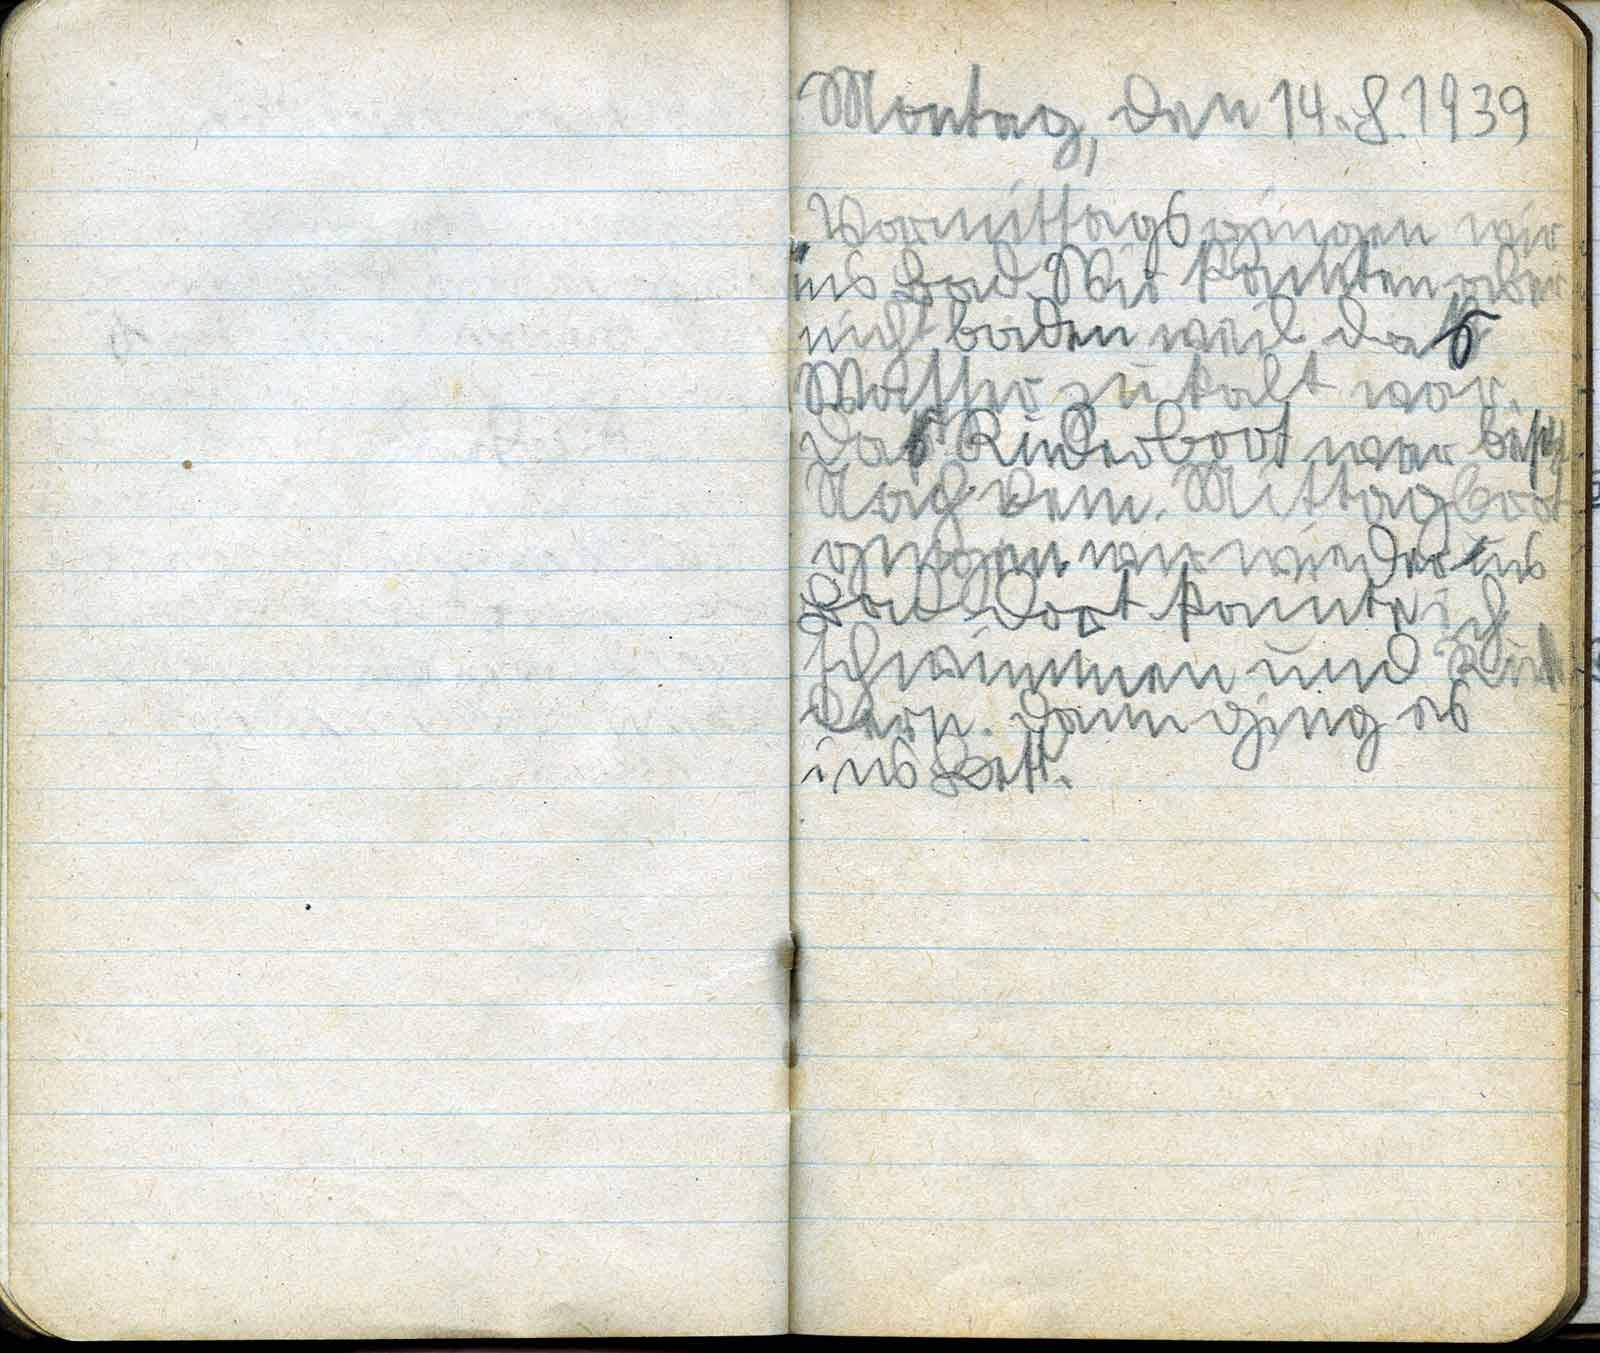 Montag, den 14.8.1939
Vormittags gingen wir
ins Bad. Wir konnten aber
nicht baden weil das
Wasser zu kalt war.
Das Ruderboot war
Nach dem Mittagbrot
gingen wir wieder ins
Bad dort konnte ich
schwimmen und Ru
dern. Dann ging es
ins Bett.